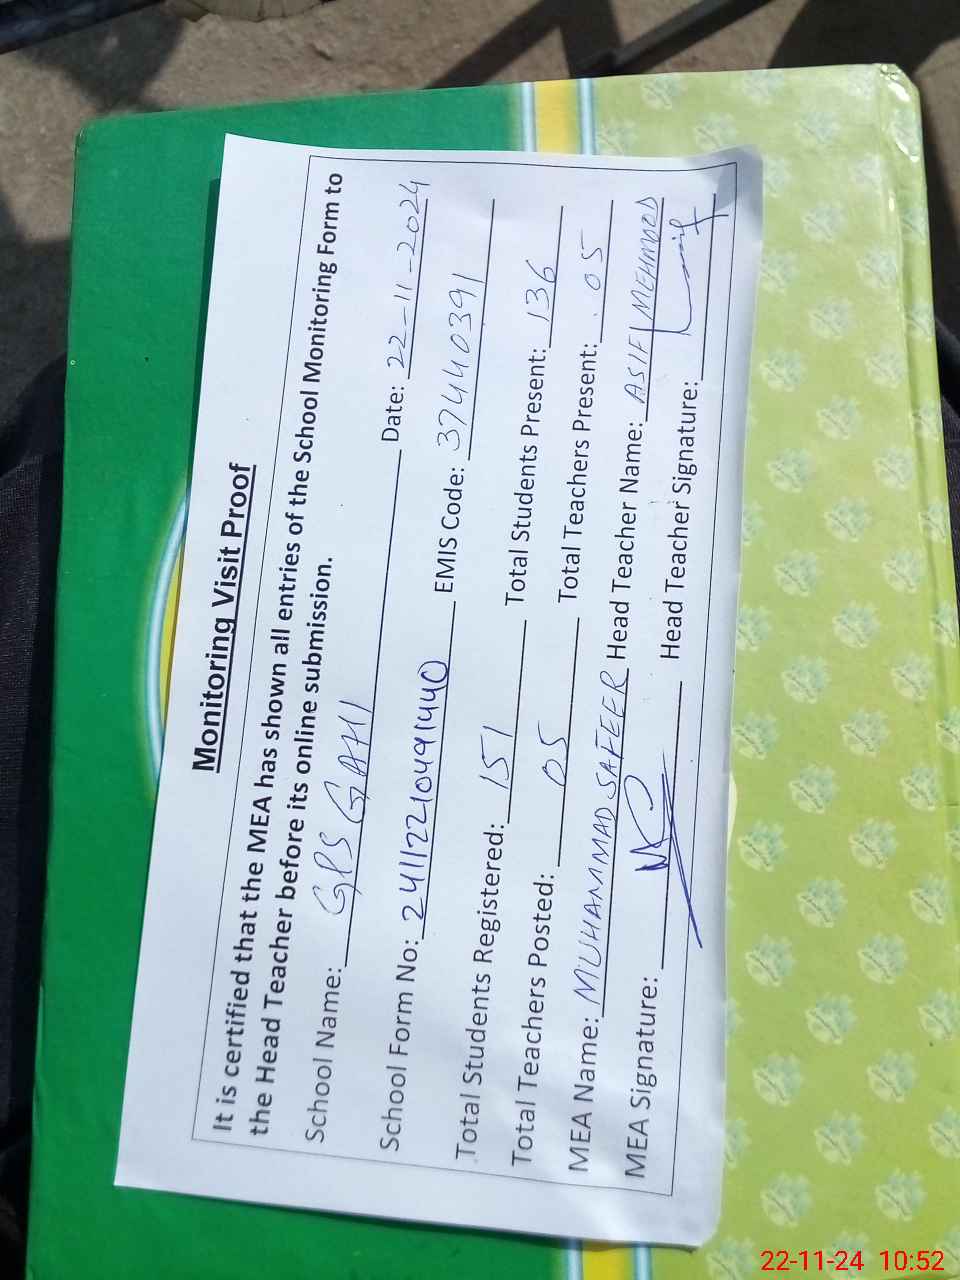 Monitoring Visit Proof
It is certified that the MEA has shown all entries of the School Monitoring Form to
the Head Teacher before its online submission.
School Name: GPS GAHI Date: 22-11-2024
School Form No: 24112210491440 EMIS Code: 37440391
Total Students Registered: 151 Total Students Present: 136
Total Teachers Posted: 05 Total Teachers Present: 05
MEA Name: MUHAMMAD SAFEER Head Teacher Name: ASIF MEHMOOD
MEA Signature: Head Teacher Signature:
22-11-24 10:52